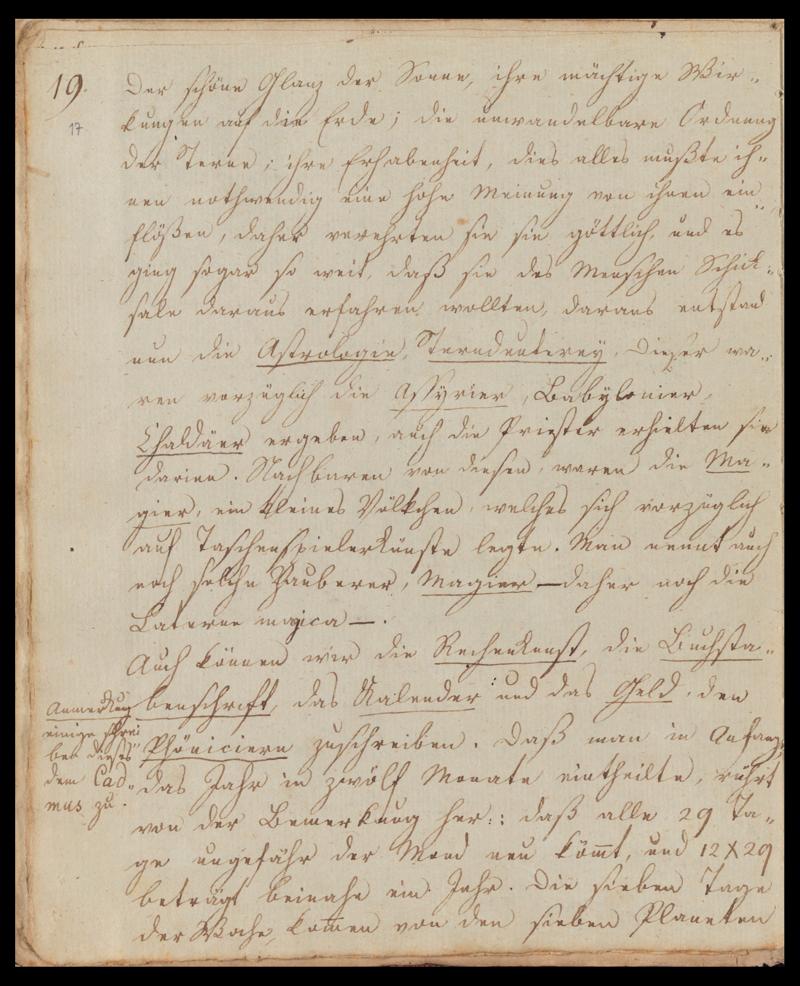 19.
17
Der schöne Glanz der Sonne, ihre mächtige Wir-
kungen auf die Erde; die unwandelbare Ordnung
der Sterne; ihre Erhabenheit, dies alles mußte ih-
nen nothwendig eine hohe Meinung von ihnen ein-
flößen, daher verehrten sie sie göttlich, und es
ging sogar so weit, daß sie des Menschen Schick-
sale daraus erfahren wollten, daraus entstand
nun die Astrologie, Sterndeuterey. Dieser wa-
ren vorzüglich die Assyrier, Babylonier,
Chaldäer ergeben, auch die Priester erhielten sie
darinn. Nachbaren von diesen, waren die Ma-
gier, ein kleines Völkchen, welches sich vorzüglich
auf Taschenspielerkünste legte. Man nennt auch
noch solche Zauberer, Magier — daher noch die
Laterne magica —.
Auch können wir die Rechenkunst, die Buchsta-
benschrift, das Kalender und das Geld, den
Phöniciern zuschreiben. Daß man im Anfang
das Jahr in zwölf Monate eintheilte, rührt
von der Bemerkung her: daß alle 29 Ta-
ge ungefähr der Mond neu kömt, und 12 X 29
beträgt beinahe ein Jahr. Die sieben Tage
der Woche, komen von den sieben Planeten
Anmerkung
einige schrei-
ben dieses
dem Cad-
mus zu.